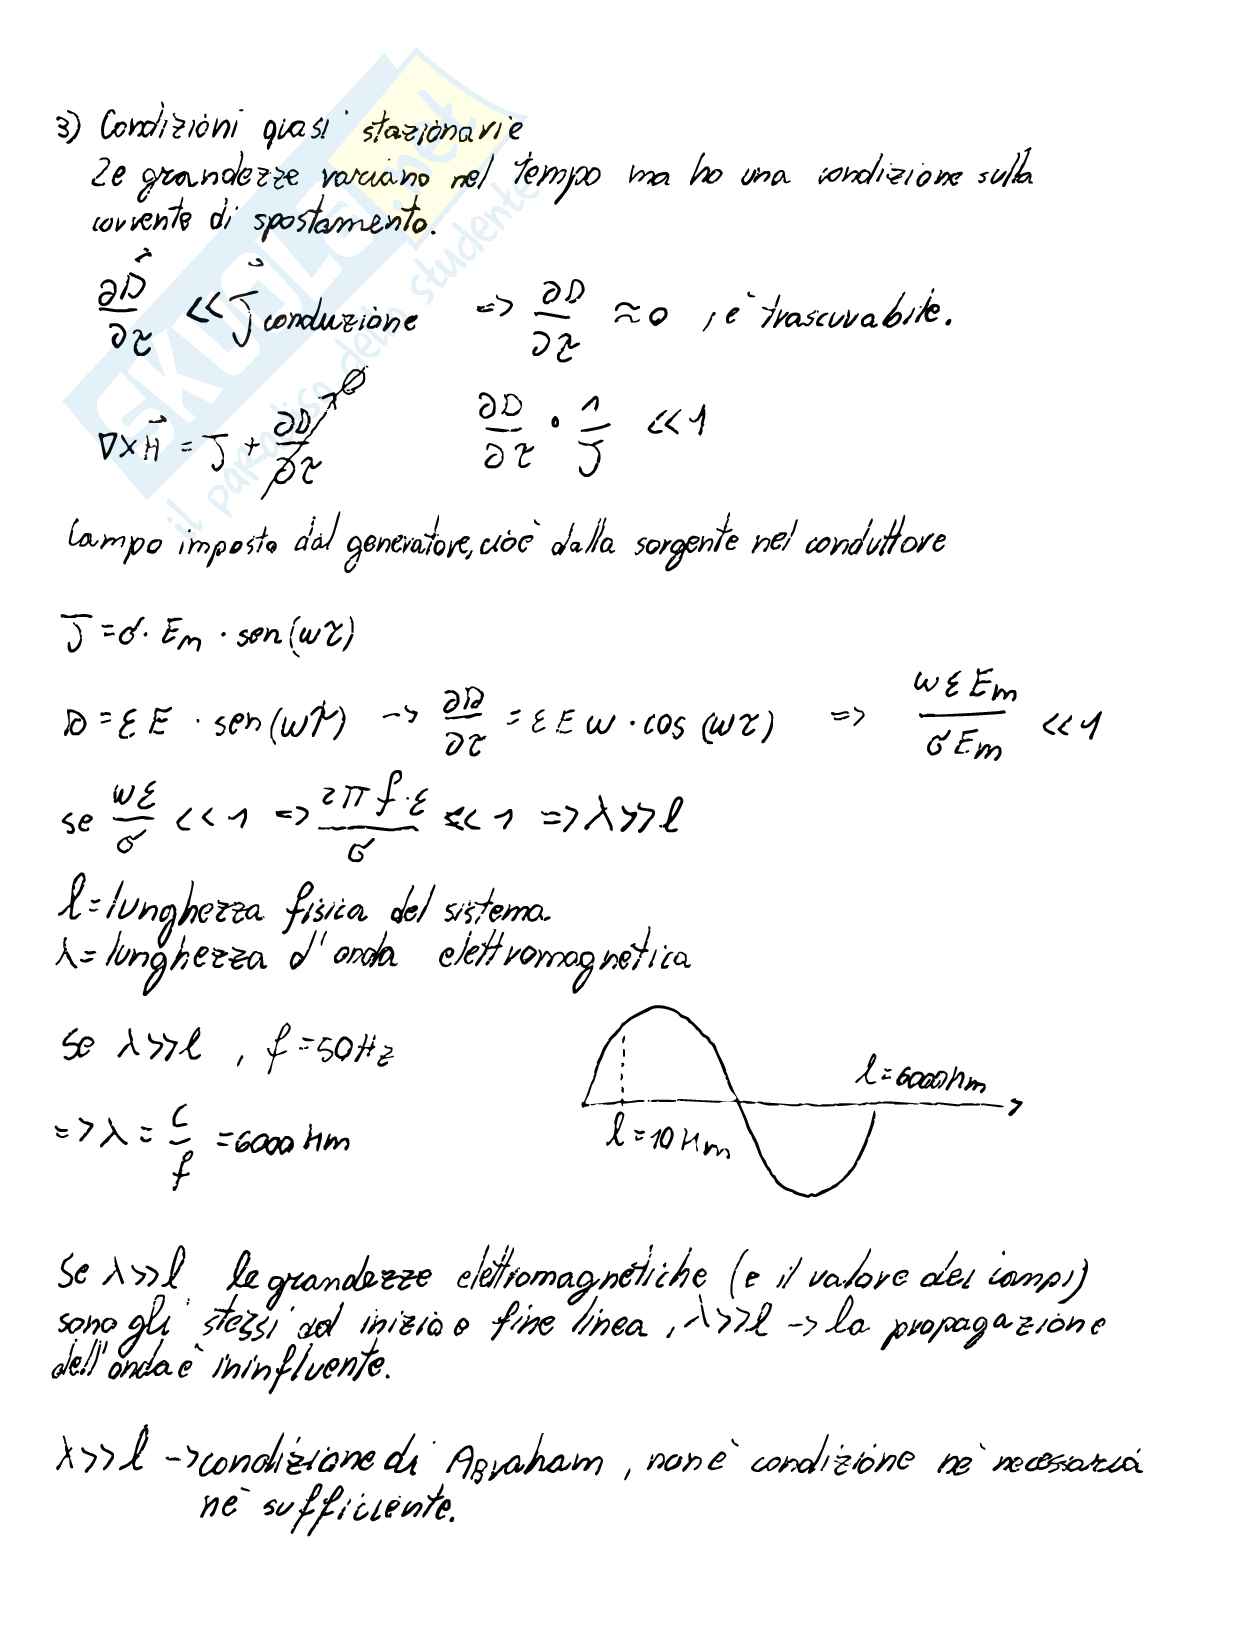 3) Condizioni quasi stazionarie
Le grandezze variano nel tempo ma ho una condizione sulla
corrente di spostamento.
∂D⃗/∂τ << J⃗ conduzione => ∂D/∂τ ≈ 0 , è trascurabile.
∇×H⃗ = J + ∂D/∂τ → 0    ∂D/∂τ • 1/J << 1
Campo imposto dal generatore, cioè dalla sorgente nel conduttore
J̅ = σ · Em · sen(ωτ)
D = ε E · sen(ωτ) -> ∂D/∂τ = ε E ω · cos(ωτ) => ωεEm/σEm << 1
se ωε/σ << 1 => 2π f·ε/σ << 1 => λ>>l
l = lunghezza fisica del sistema.
λ = lunghezza d'onda elettromagnetica
Se λ>>l , f = 50Hz
=> λ = c/f = 6000 km
l = 6000 km
l = 10 Km
Se λ>>l le grandezze elettromagnetiche (e il valore dei campi)
sono gli stessi ad inizio e fine linea, λ>>l -> la propagazione
dell'onda è ininfluente.
λ>>l -> condizione di Abraham, non è condizione nè necessaria
nè sufficiente.
SKUOLA.net
il paradiso dello studente